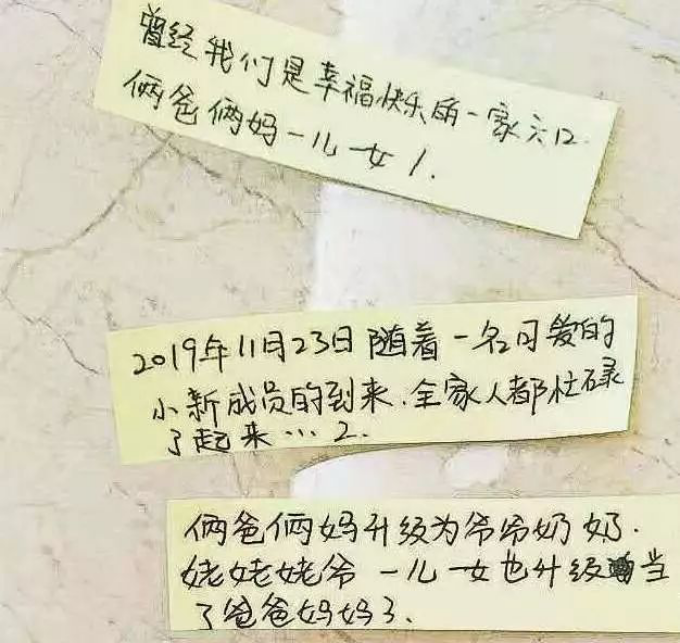 曾经我们是幸福快乐的一家六口.
俩爸俩妈一儿一女1.
2019年11月23日随着一名可爱的
小新成员的到来.全家人都忙碌
了起来…2.
俩爸俩妈升级为爷爷奶奶.
姥姥姥爷一儿一女也升级当
了爸爸妈妈3.